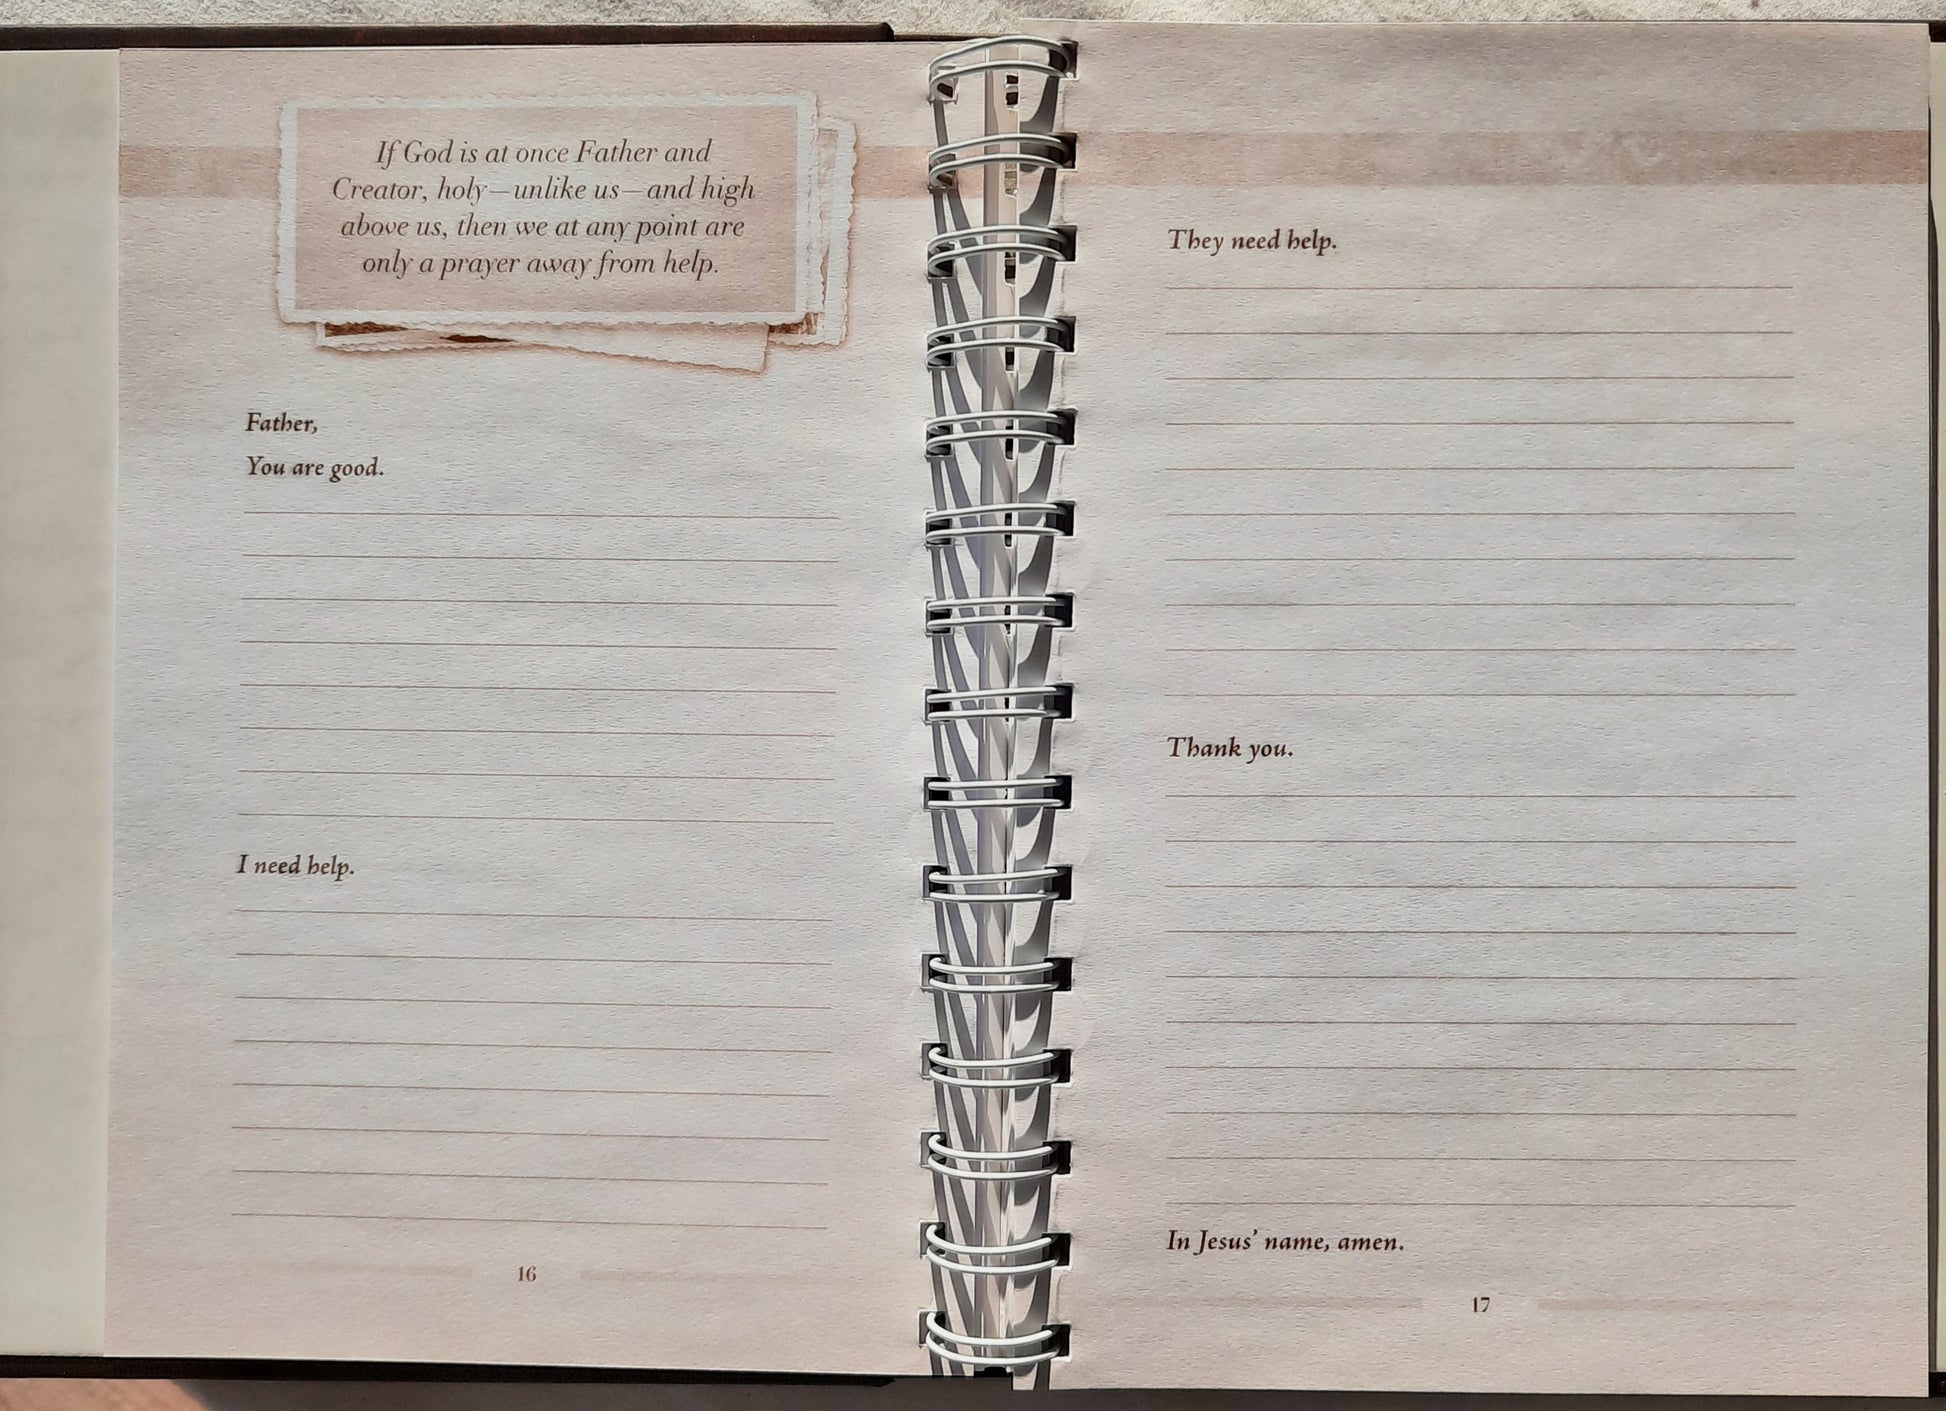 If God is at once Father and
Creator, holy—unlike us—and high
above us, then we at any point are
only a prayer away from help.
Father,
You are good.
I need help.
16
They need help.
Thank you.
In Jesus’ name, amen.
17